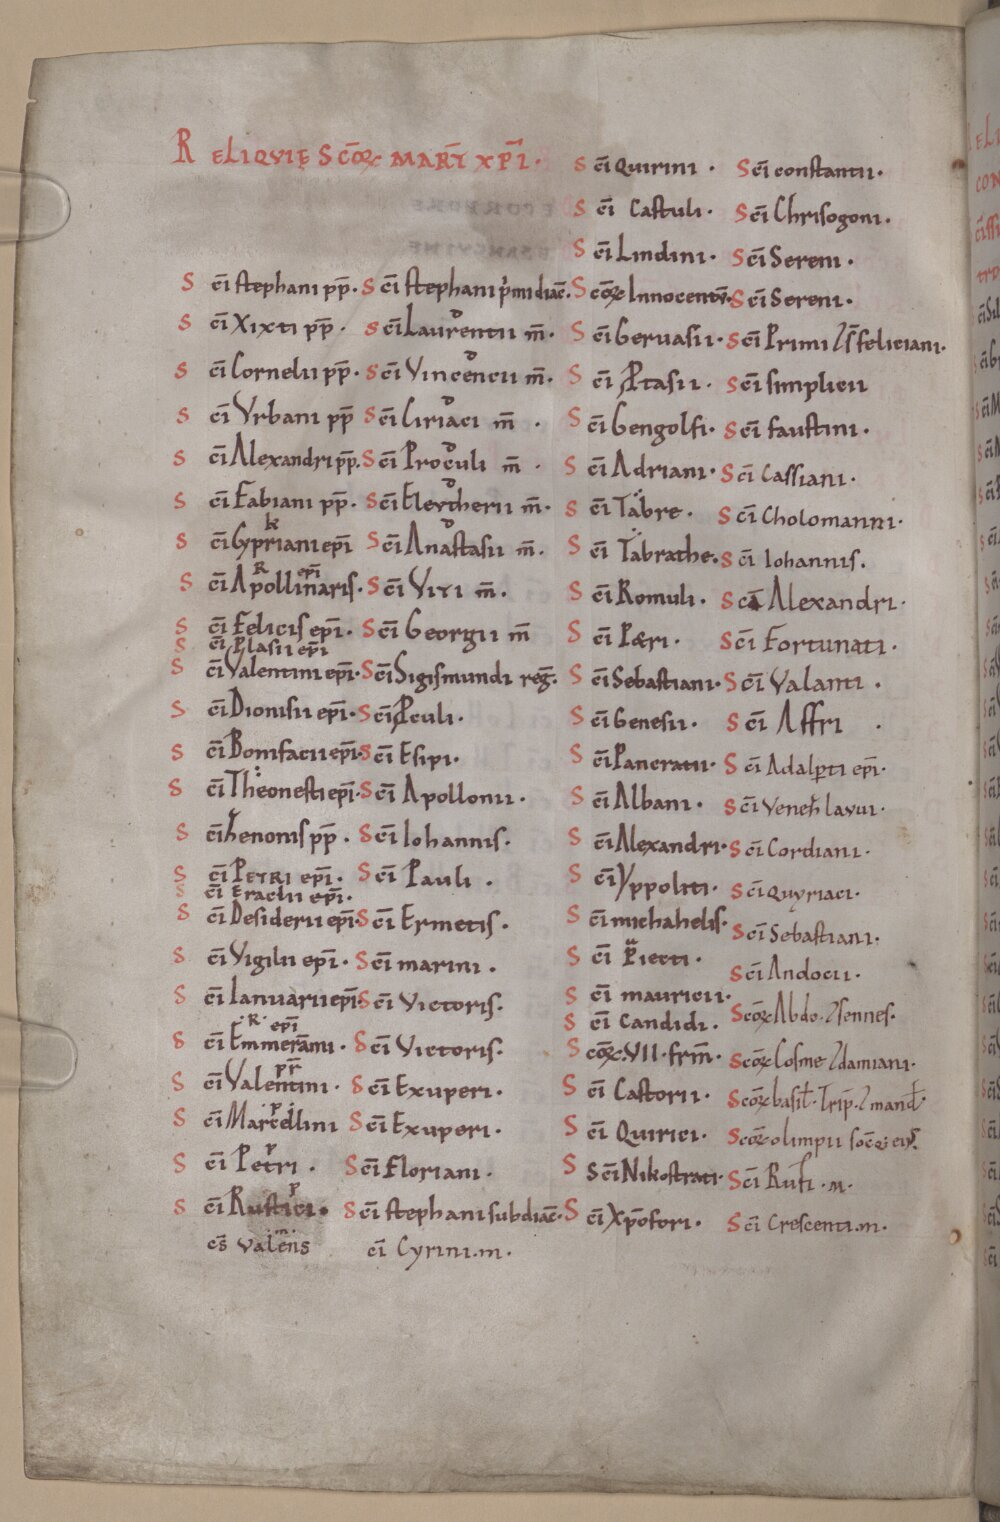 RELIQVIĘ SC̄OꝜ MART̄ XP̄I.
Sc̄i stephani pp̄.
Sc̄i Xixti pp̄.
Sc̄i Cornelii pp̄.
Sc̄i Vrbani pp̄
Sc̄i Alexandri pp̄.
Sc̄i Fabiani pp̄.
Sc̄i Cypriani ep̄i
Sc̄i Apollinaris. ep̄i
Sc̄i Felicis ep̄i.
Sc̄i Plasii ep̄i
Sc̄i Valentini ep̄i.
Sc̄i Dionisii ep̄i.
Sc̄i Bonifacii ep̄i.
Sc̄i Theonesti ep̄i.
Sc̄i henonis pp̄.
Sc̄i PETRI ep̄i.
Sc̄i Eraclii ep̄i.
Sc̄i Desiderii ep̄i.
Sc̄i Vigilii ep̄i.
Sc̄i Ianuarii ep̄i
Sc̄i Emmerāmi. ep̄i
Sc̄i Valentini.
Sc̄i Marcellini
Sc̄i Petri.
Sc̄i Rustici.
cs̄ Valens
Sc̄i stephani p̄mi diac̄.
Sc̄i Laurentii m̄.
Sc̄i Vincencii m̄.
Sc̄i Ciriaci m̄.
Sc̄i Proculi m̄.
Sc̄i Elevtherii m̄.
Sc̄i Anastasii m̄.
Sc̄i Viti m̄.
Sc̄i Georgii m̄
Sc̄i Sigismundi reḡ.
Sc̄i Ꝓculi.
Sc̄i Esipi.
Sc̄i Apollonii.
Sc̄i Iohannis.
Sc̄i Pauli.
Sc̄i Ermetis.
Sc̄i marini.
Sc̄i Victoris.
Sc̄i Victoris.
Sc̄i Exuperi.
Sc̄i Exuperi.
Sc̄i Floriani.
Sc̄i stephani subdiac̄.
c̄i Cyrini.m.
Sc̄i Quirini.
Sc̄i Castuli.
Sc̄i Lindini.
Sc̄oꝝ Innocentū.
Sc̄i Geruasii.
Sc̄i Ꝓtasii.
Sc̄i Gengolfi.
Sc̄i Adriani.
Sc̄i Tabre.
Sc̄i Tabrathe.
Sc̄i Romuli.
Sc̄i Pætri.
Sc̄i Sebastiani.
Sc̄i Genesii.
Sc̄i Pancratii.
Sc̄i Albani.
Sc̄i Alexandri.
Sc̄i Yppoliti.
Sc̄i michahelis.
Sc̄i Piecti.
Sc̄i mauricii.
Sc̄i Candidi.
Sc̄oꝝ.VII.frm̄.
Sc̄i Castorii.
Sc̄i Quirici.
S Sc̄i Nikostrati.
Sc̄i Xp̄ofori.
Sc̄i constantii.
Sc̄i Chrisogoni.
Sc̄i Sereni.
Sc̄i Sereni.
Sc̄i Primi ⁊ S̄ feliciani.
Sc̄i simplicii
Sc̄i faustini.
Sc̄i Cassiani.
Sc̄i Cholomanni.
Sc̄i Iohannis.
Sc̄i Alexandri.
Sc̄i Fortunati.
Sc̄i Valanti.
Sc̄i Affri.
Sc̄i Adalꝑti ep̄i.
Sc̄i Venezlavui.
Sc̄i Cordiani.
Sc̄i Quyriaci.
Sc̄i Sebastiani.
Sc̄i Andocii.
Sc̄oꝝ Abdo. ⁊ sennes.
Sc̄oꝝ Cosme ⁊ damiani.
Sc̄oꝝ basil̄. Trip̄. ⁊ mand̄
Sc̄oꝝ olimpii
Sc̄i Rufi.m.
Sc̄i Crescenti.m.